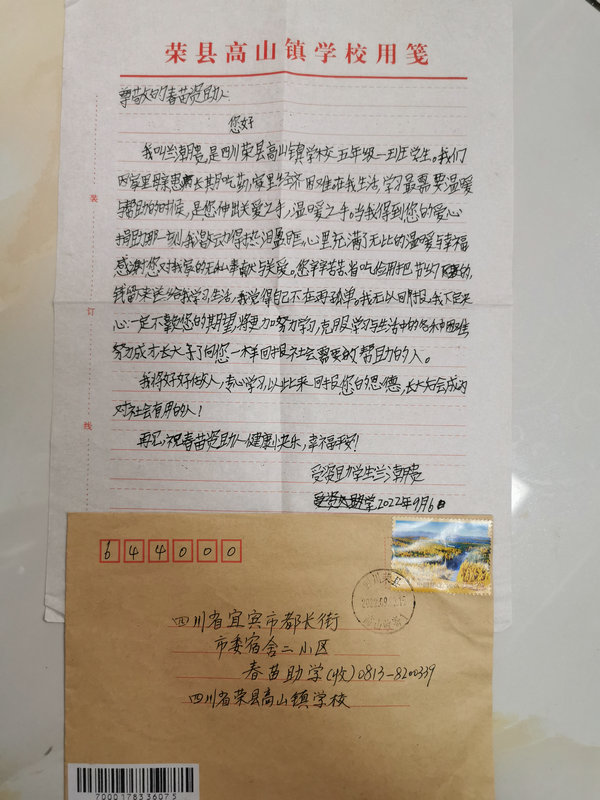 荣县高山镇学校用笺
尊敬的春苗资助人:
您好
我叫兰潮贵,是四川荣县高山镇学校五年级一班学生。我们
因家里母亲患病长其月吃药,家里经济困难在我生活,学习最需要温暖
与帮助的时候,是您伸出关爱之手,温暖之手。当我得到您的爱心
捐助那一刻我激动得热泪盈眶,心里充满了无比的温暖与幸福
感谢您对我家的无私奉献与关爱。您辛辛苦苦省吃俭用把节约的
钱留来送给我学习生活,我觉得自己不在再孤单。我无以回报,我下定决
心:一定不辜负您的期望,将更加努力学习,克服学习与生活中的各种困难
努力成才长大了向您一样回报社会需要的帮助的人。
我将好好做人,专心学习,以此来回报您的恩德,长大后会成为
对社会有用的人!
再见,祝春苗资助人健康快乐,幸福平安!
受资助学生兰潮贵
2022年9月6日
装
订
线
644000
四川荣县
2022.09
四川省宜宾市都长街
市委宿舍二小区
春苗助学(收)0813-8200339
四川省荣县高山镇学校
7000178336075